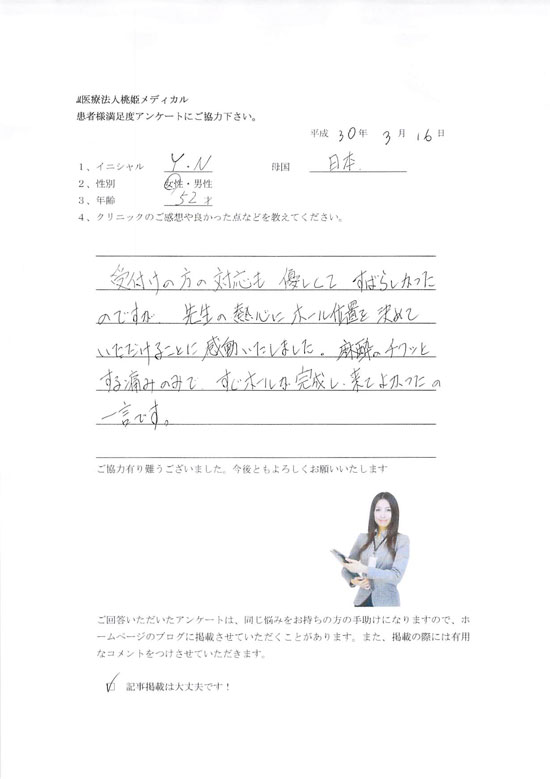 医療法人桃姫メディカル
患者様満足度アンケートにご協力下さい。
平成 30年 3月 16日
1、イニシャル Y・N 母国 日本
2、性別 女性・男性
3、年齢 52才
4、クリニックのご感想や良かった点などを教えてください。
受付けの方の対応も 優しくて すばらしかった
のですが、先生の熱心にホール位置を決めて
いただけることに感動いたしました。麻酔のチクッと
する痛みのみで、すぐホールが完成し、来てよかったの
一言です。
ご協力有り難うございました。今後ともよろしくお願いいたします
ご回答いただいたアンケートは、同じ悩みをお持ちの方の手助けになりますので、ホ
ームページのブログに掲載させていただくことがあります。また、掲載の際には有用
なコメントをつけさせていただきます。
記事掲載は大丈夫です！